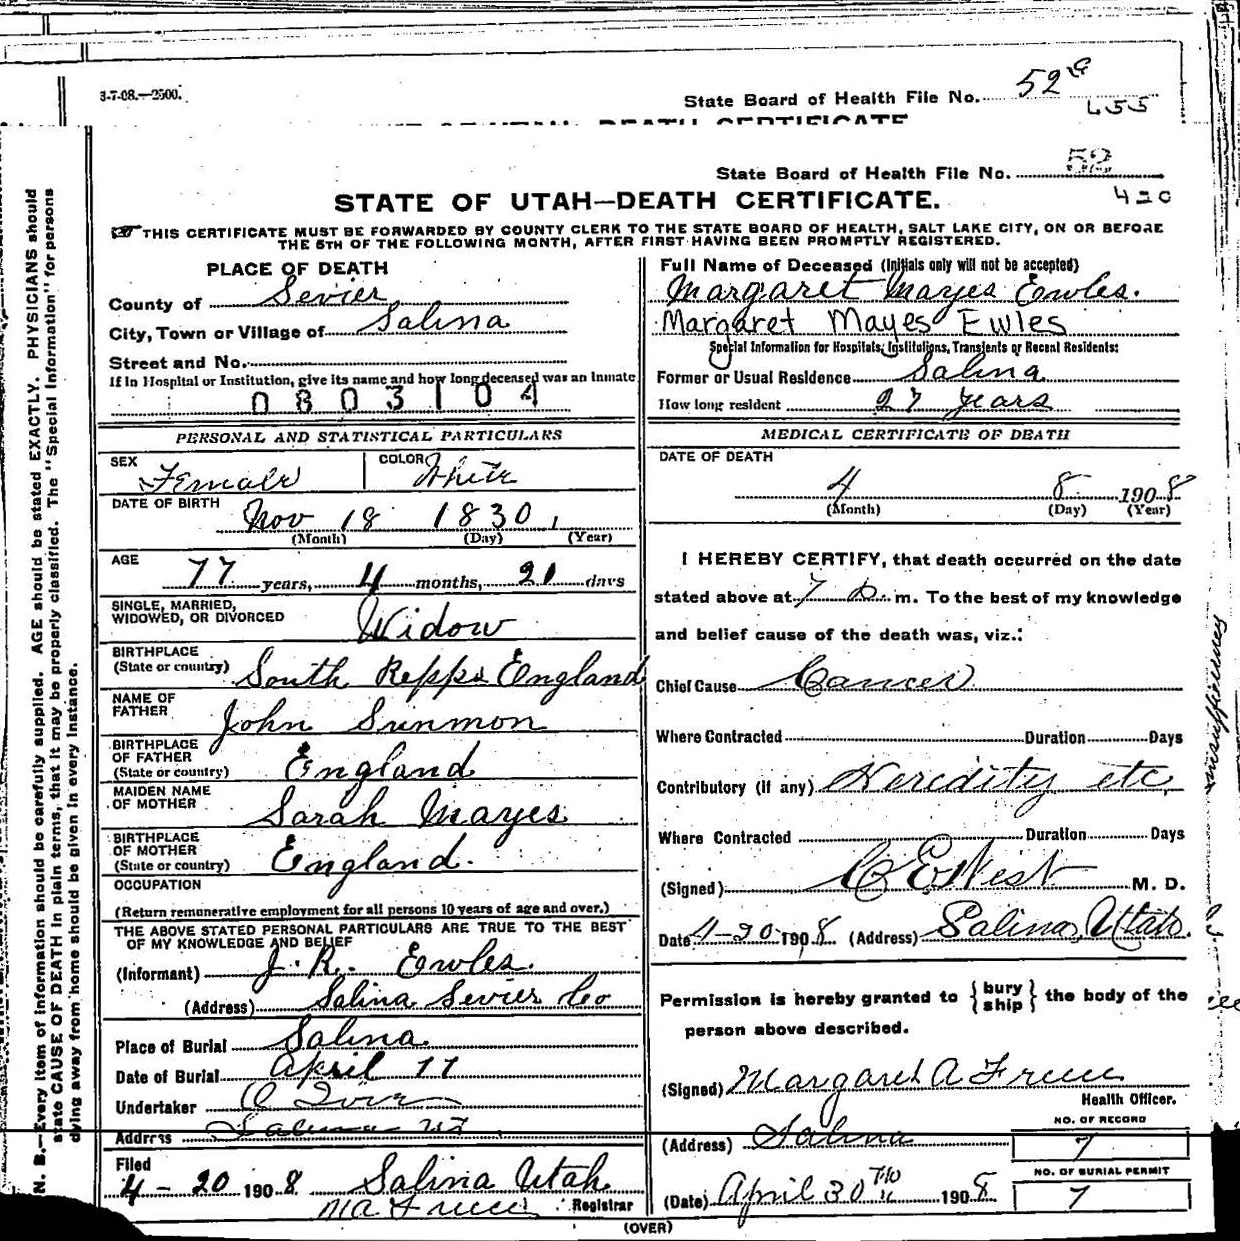 3-7-08.—2500.
State Board of Health File No. 52
455
State Board of Health File No. 52
420
STATE OF UTAH—DEATH CERTIFICATE.
THIS CERTIFICATE MUST BE FORWARDED BY COUNTY CLERK TO THE STATE BOARD OF HEALTH, SALT LAKE CITY, ON OR BEFORE
THE 5TH OF THE FOLLOWING MONTH, AFTER FIRST HAVING BEEN PROMPTLY REGISTERED.
PLACE OF DEATH
County of Sevier
City, Town or Village of Salina
Street and No.
If in Hospital or Institution, give its name and how long deceased was an Inmate
0803104
PERSONAL AND STATISTICAL PARTICULARS
SEX Female COLOR White
DATE OF BIRTH
Nov 18 1830
(Month) (Day) (Year)
AGE 77 years, 4 months, 21 days
SINGLE, MARRIED,
WIDOWED, OR DIVORCED Widow
BIRTHPLACE
(State or country) South Repps England
NAME OF
FATHER John Sunmon
BIRTHPLACE
OF FATHER
(State or country) England
MAIDEN NAME
OF MOTHER Sarah Mayes
BIRTHPLACE
OF MOTHER
(State or country) England.
OCCUPATION
(Return remunerative employment for all persons 10 years of age and over.)
THE ABOVE STATED PERSONAL PARTICULARS ARE TRUE TO THE BEST
OF MY KNOWLEDGE AND BELIEF
(Informant) J. R. Ewles.
(Address) Salina Sevier Co
Place of Burial Salina
Date of Burial April 11
Undertaker
Address Salina Ut
Filed
4-20 1908 Salina Utah
M A Freece Registrar
Full Name of Deceased (Initials only will not be accepted)
Margaret Mayes Ewles.
Margaret Mayes Ewles
Special Information for Hospitals, Institutions, Transients or Recent Residents:
Former or Usual Residence Salina
How long resident 27 years
MEDICAL CERTIFICATE OF DEATH
DATE OF DEATH
4 8 1908
(Month) (Day) (Year)
I HEREBY CERTIFY, that death occurred on the date
stated above at 7 p. m. To the best of my knowledge
and belief cause of the death was, viz.:
Chief Cause Cancer
Where Contracted Duration Days
Contributory (if any) Heredity etc.
Where Contracted Duration Days
(Signed) C E West M. D.
Date 4-20 1908 (Address) Salina, Utah.
Permission is hereby granted to {bury
ship} the body of the
person above described.
(Signed) Margaret A Freece
Health Officer.
(Address) Salina
NO. OF RECORD
7
NO. OF BURIAL PERMIT
7
(Date) April 30 1908
(OVER)
N. B.—Every item of information should be carefully supplied. AGE should be stated EXACTLY. PHYSICIANS should
state CAUSE OF DEATH in plain terms, that it may be properly classified. The "Special Information" for persons
dying away from home should be given in every instance.